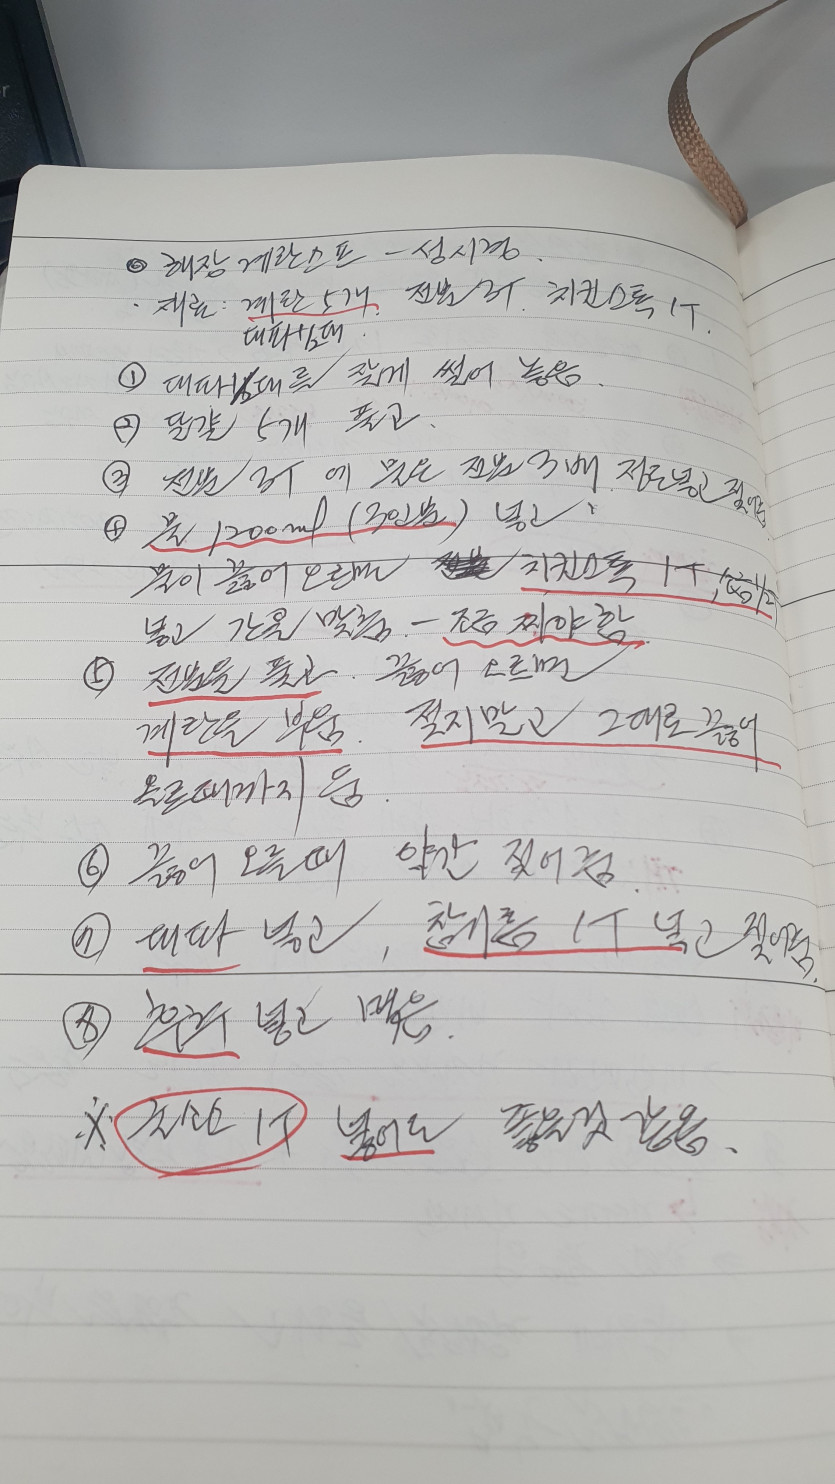 ◎ 해장계란스프 - 성시경.
· 재료: 계란 5개. 전분 3T. 치킨스톡 1T.
대파 반대.
① 대파 반대를 잘게 썰어 놓음.
② 달걀 5개 풀고.
③ 전분 3T에 물은 전분 3배 정도 넣고 젖어줌
④ 물 1200ml (3인분) 넣고
물이 끓어 오르면 치킨스톡 1T, 1/2
넣고 간을 맞춤. - 조금 짜야 함.
⑤ 전분을 풀고. 끓어 오르면
계란을 부음. 젖지말고 그대로 끓어
오를때까지 둠.
⑥ 끓어 오를때 약간 젖어줌.
⑦ 대파 넣고, 참기름 1T 넣고 젖어줌.
⑧ 후추 넣고 먹음.
※ 1T 넣어도 좋을것 같음.